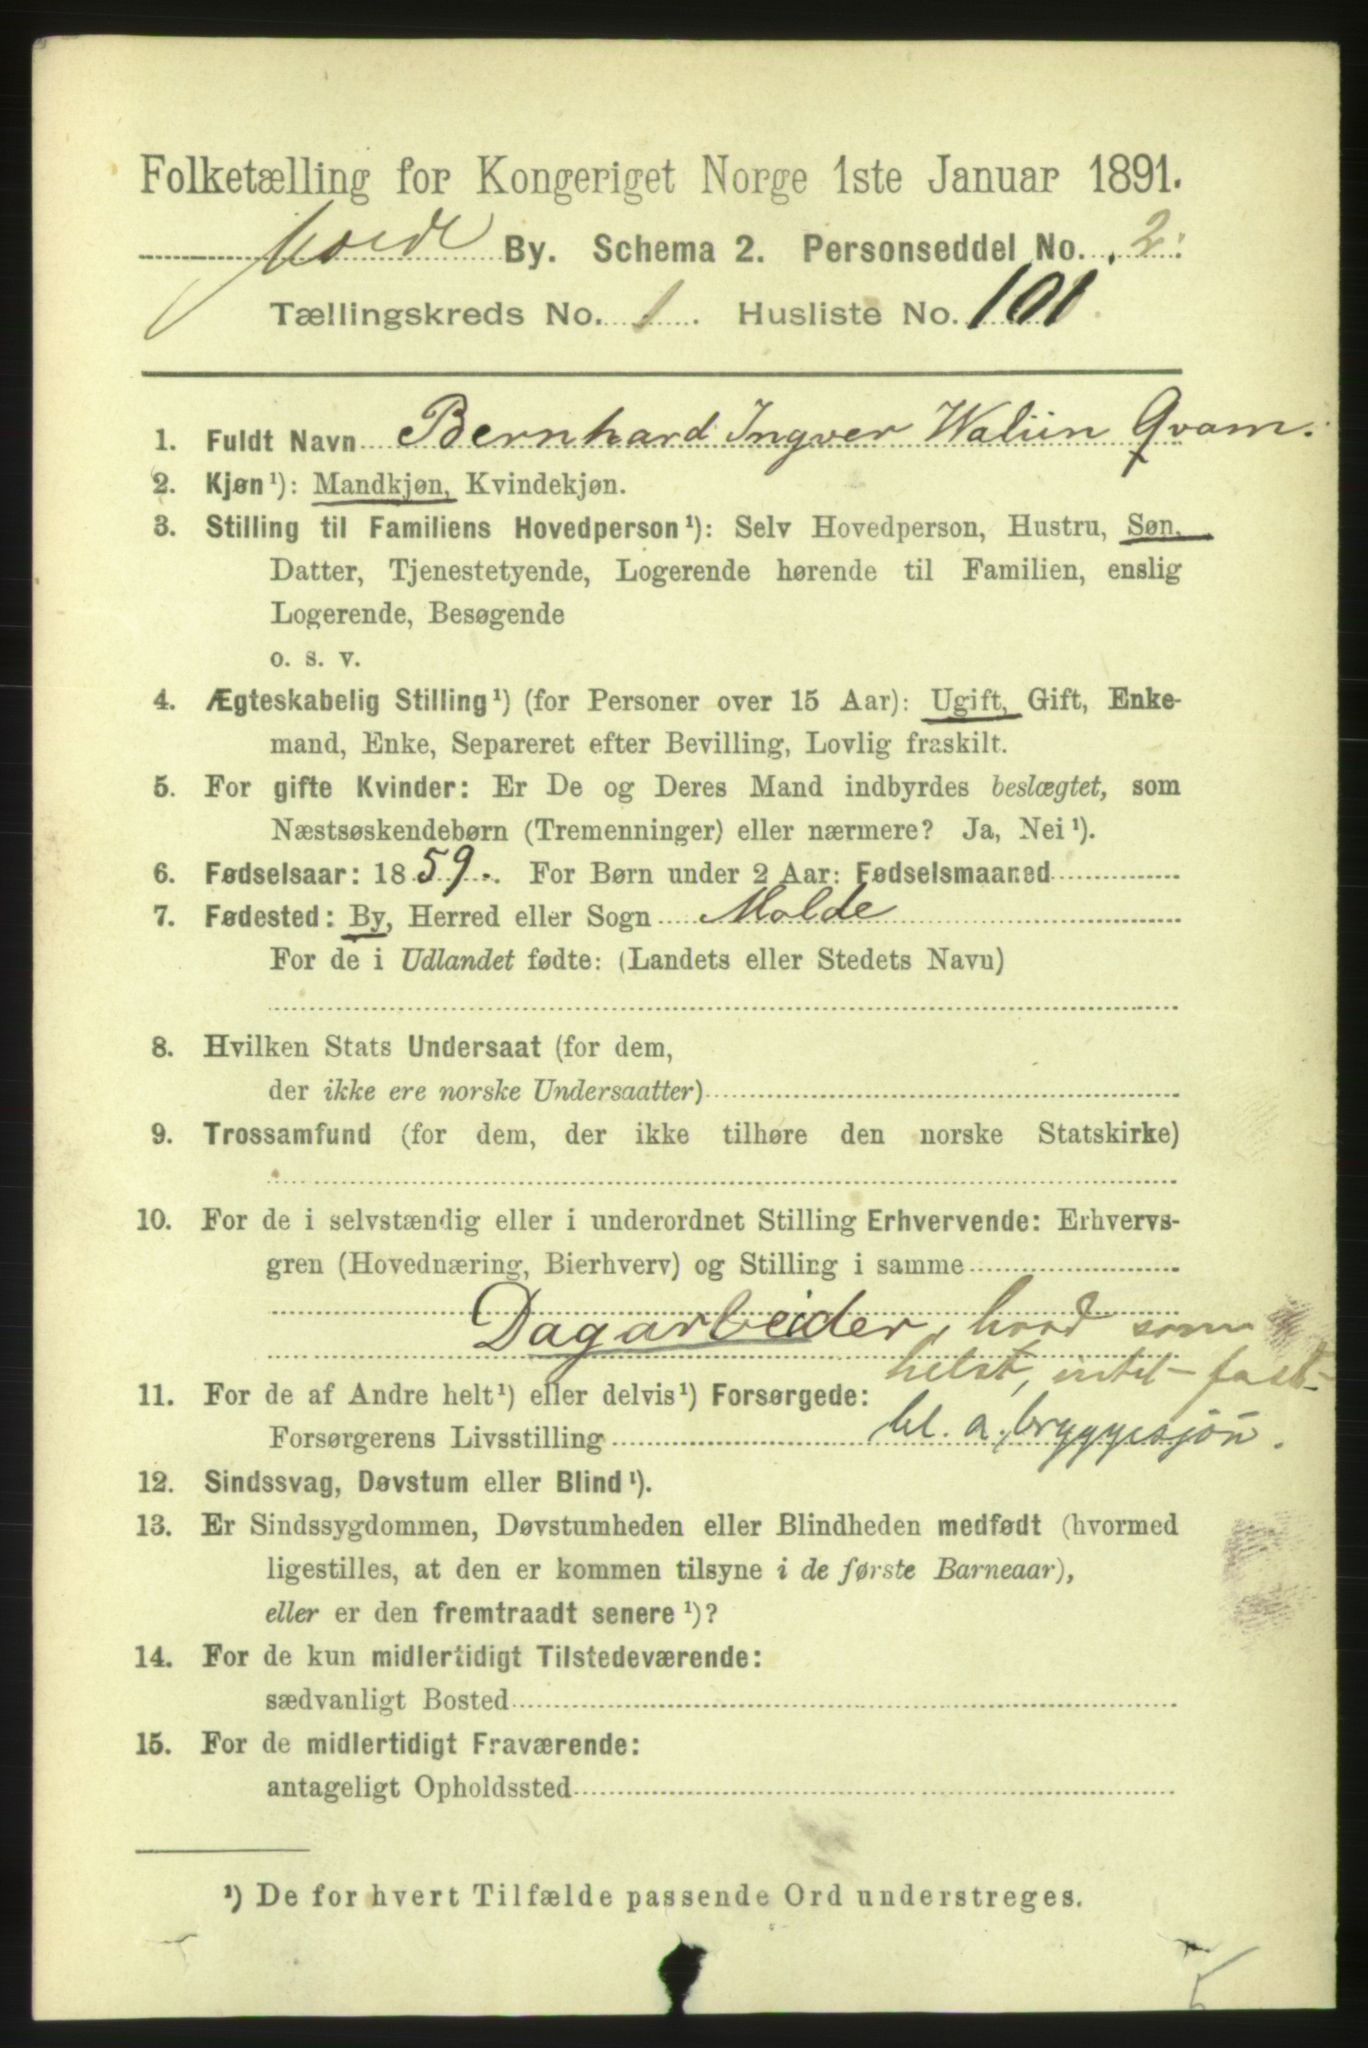 Folketælling for Kongeriget Norge 1ste Januar 1891.
Molde By. Schema 2. Personseddel No. 2.
Tællingskreds No. 1. Husliste No. 101
1. Fuldt Navn Bernhard Ingver Waliin Qvam.
2. Kjøn¹): Mandkjøn, Kvindekjøn.
3. Stilling til Familiens Hovedperson¹): Selv Hovedperson, Hustru, Søn,
Datter, Tjenestetyende, Logerende hørende til Familien, enslig
Logerende, Besøgende
o. s. v.
4. Ægteskabelig Stilling¹) (for Personer over 15 Aar): Ugift, Gift, Enke-
mand, Enke, Separeret efter Bevilling, Lovlig fraskilt.
5. For gifte Kvinder: Er De og Deres Mand indbyrdes beslægtet, som
Næstsøskendebørn (Tremenninger) eller nærmere? Ja, Nei¹).
6. Fødselsaar: 1859. For Børn under 2 Aar: Fødselsmaaned
7. Fødested: By, Herred eller Sogn Molde
For de i Udlandet fødte: (Landets eller Stedets Navn)
8. Hvilken Stats Undersaat (for dem,
der ikke ere norske Undersaatter)
9. Trossamfund (for dem, der ikke tilhøre den norske Statskirke)
10. For de i selvstændig eller i underordnet Stilling Erhvervende: Erhvervs-
gren (Hovednæring, Bierhverv) og Stilling i samme
Dagarbeider, hvad som
helst, intet fast
11. For de af Andre helt¹) eller delvis¹) Forsørgede:
Forsørgerens Livsstilling bl. a. bryggesjöu.
12. Sindssvag, Døvstum eller Blind¹).
13. Er Sindssygdommen, Døvstumheden eller Blindheden medfødt (hvormed
ligestilles, at den er kommen tilsyne i de første Barneaar),
eller er den fremtraadt senere¹)?
14. For de kun midlertidigt Tilstedeværende:
sædvanligt Bosted
15. For de midlertidigt Fraværende:
antageligt Opholdssted
¹) De for hvert Tilfælde passende Ord understreges.
5